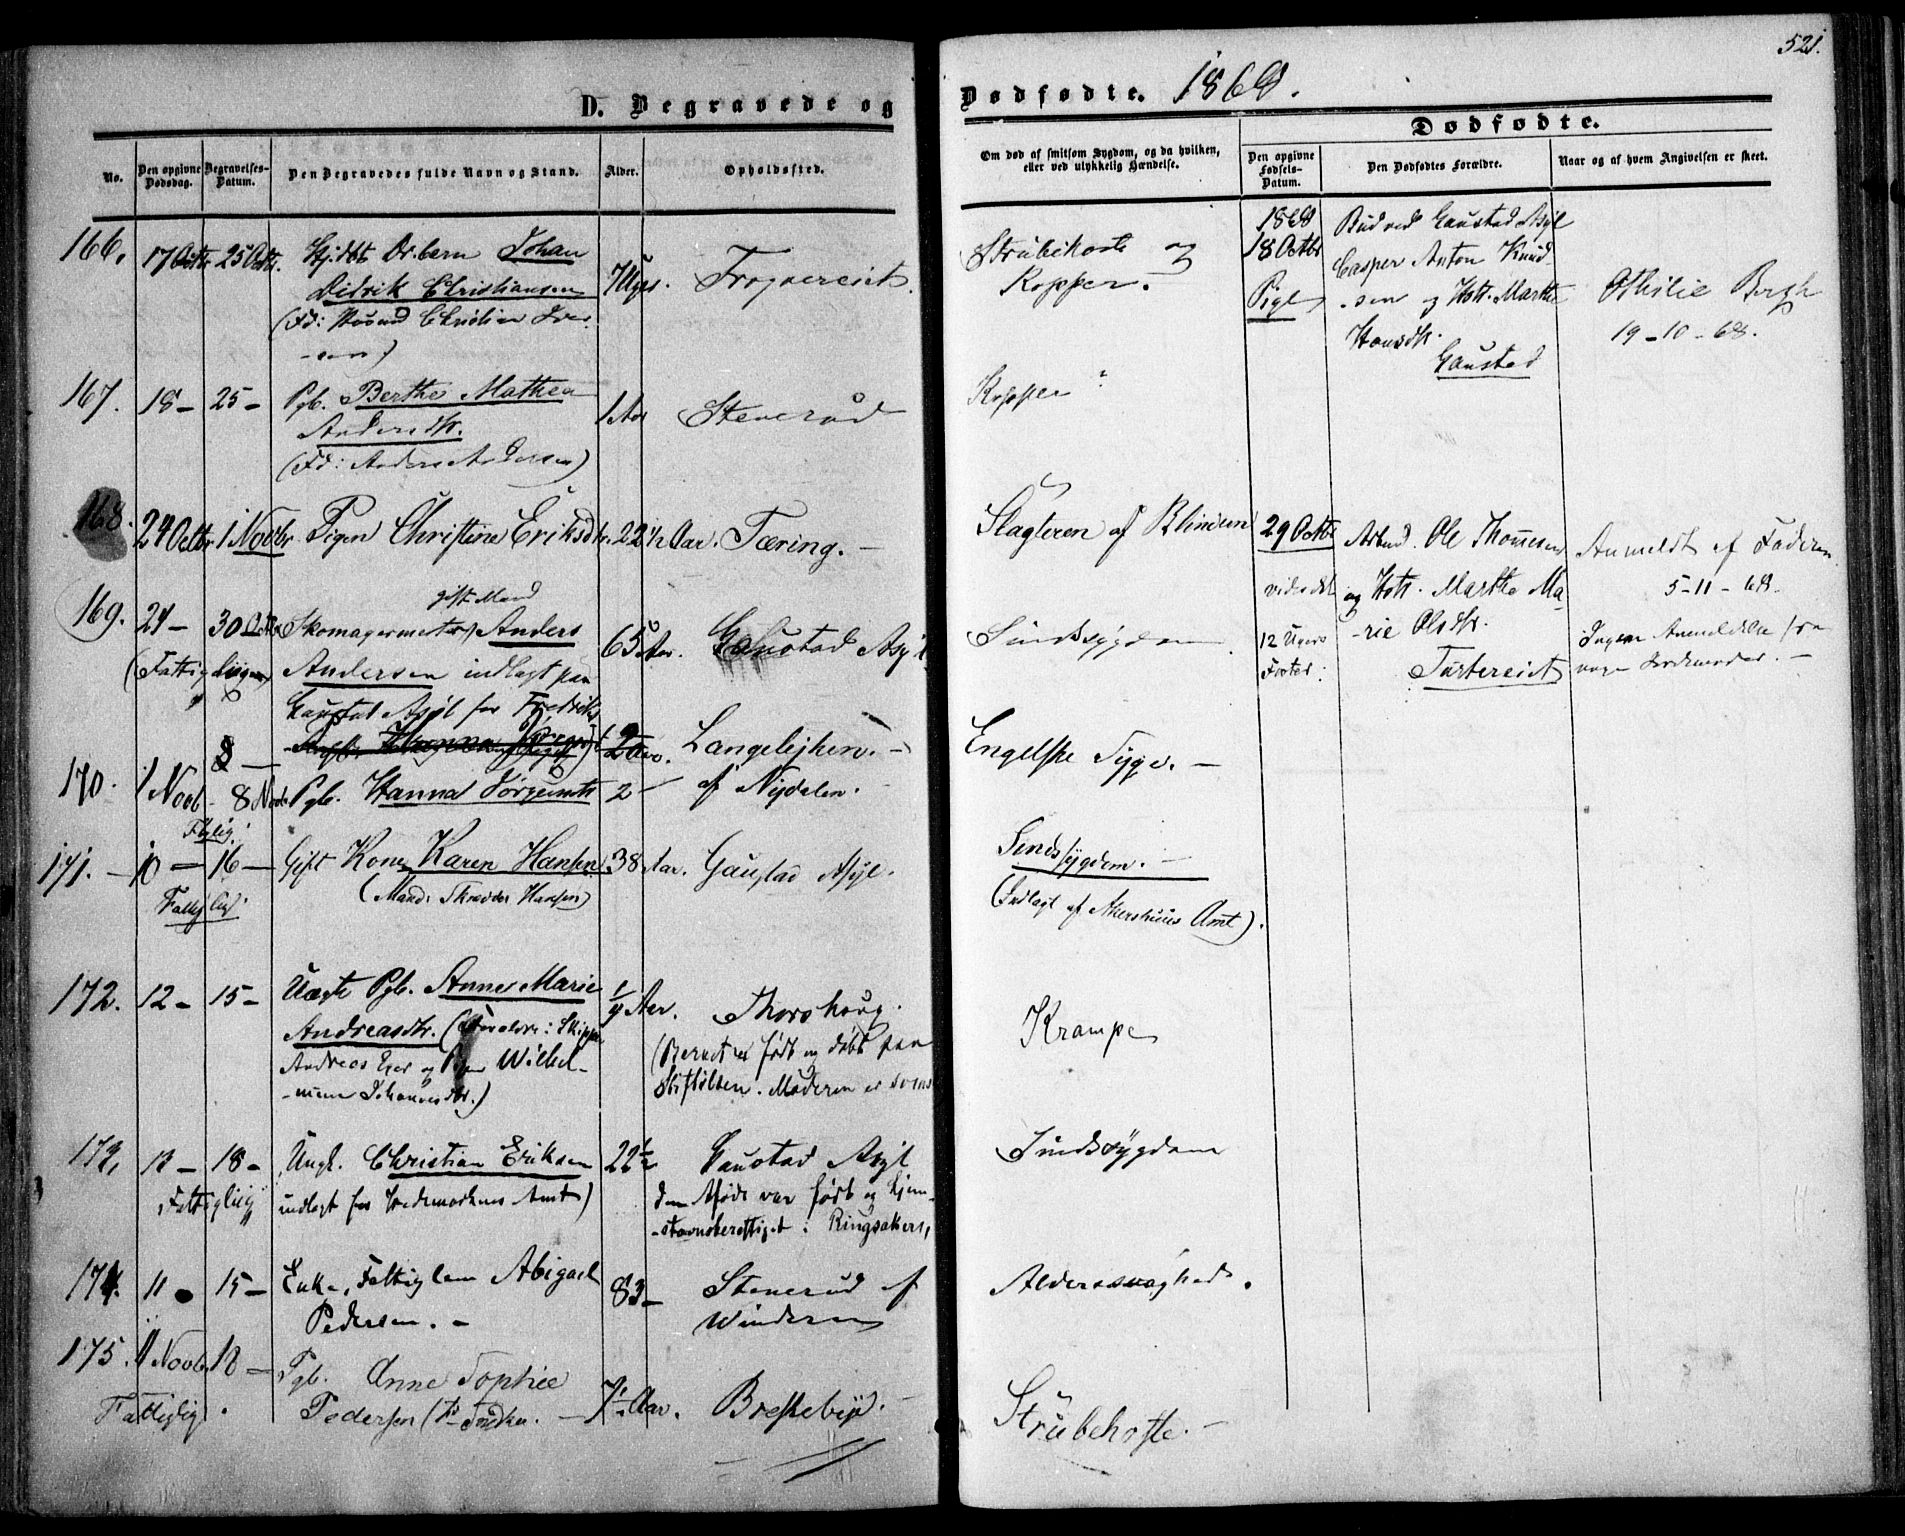 521.
D. Begravede og
Dødfødte. 1868.
No.
Den opgivne Dødsdag.
Begravelses-Datum.
Den Begravedes fulde Navn og Stand.
Alder.
Opholdssted.
Om død af smitsom Sygdom, og da hvilken,
eller ved ulykkelig Hændelse.
Dødfødte.
Den opgivne
Fødsels-
Datum.
Den Dødfødtes Forældre.
Naar og af hvem Angivelsen er skeet.
166. 17 Octbr 25 Octbr.
Johan
Didrik Christiansen
(Fd: Husmd Christian Iver-
-sen)
7 Uger.
Strubehoste og
Kopper.
1868
18 Octbr
Pige
Bud ved Gaustad Asyl
Casper Anton Knud-
-sen og Hstr. Marthe
Hansdtr.
Gaustad
Othilie Bergh
19-10-68.
167. 18 - 25 - Pgb. Berthe Mathea
Andersdtr.
(Fd: Anders Andersen)
1 Aar Stenerud
Kopper
168. 24 Octbr 1 Novbr Pigen Christine Eriksdtr. 22 1/2 Aar. Tæring. -
Slagteren af Blindern
29 Octbr
12 Ugers
Foster:
Arbmd. Ole Thomesen
og Hstr. Marthe Ma-
-rie Olsdtr.
Tuftereiet
Anmeldt af Faderen
5-11-68.
Ingen Anmeldelse fra
nogen Jordemoder. -
169. 24 - 30 Octbr
gift Mand
Skomagermester Anders
Andersen indlagt paa
Gaustad Asyl for Fredriks
65 Aar. Gaustad Asyl
Sindssygdom
8 -
2 Aar. Langelejken. -
af Nydalen.
Engelske Syge. -
170. 1 Novb - 8 Novb Pgb. Hanna Jørgensdtr 2 -
171. - 10 - 16 - Gift Kone Karen Hansen 38 Aar. Gaustad Asyl.
(Mand: Skrædder Hansen)
Sindssygdom. -
(Indlagt af Akershuus Amt).
172. 12 - 15 - Uægte Pgb. Anne Marie
Andreasdtr. (Forældre: Skipper
Andreas og Wilhel-
-mine Johannesdtr.)
Aar. Thorshaug.
(Barnet er født og døbt paa
Moderen er
Krampe
173. 12 - 18 - Ungk. Christian Eriksen
indlagt for Hedemarkens Amt)
Fattiglig
22 1/2 Gaustad Asyl
den Afdøde var født og hjem-
-stavnsberettiget i Ringsaker,
Sindssygdom
174. 11 - 15 - Enke, Fattiglem Abigael
Pedersen. -
83 - Stenerud af
Winderen
Alderssvaghed.
175. 11 Novb. 18 - Pgb. Anne Sophie
Pedersen
Fattiglig.
Aar. Brekkebye. -
Strubehoste. -